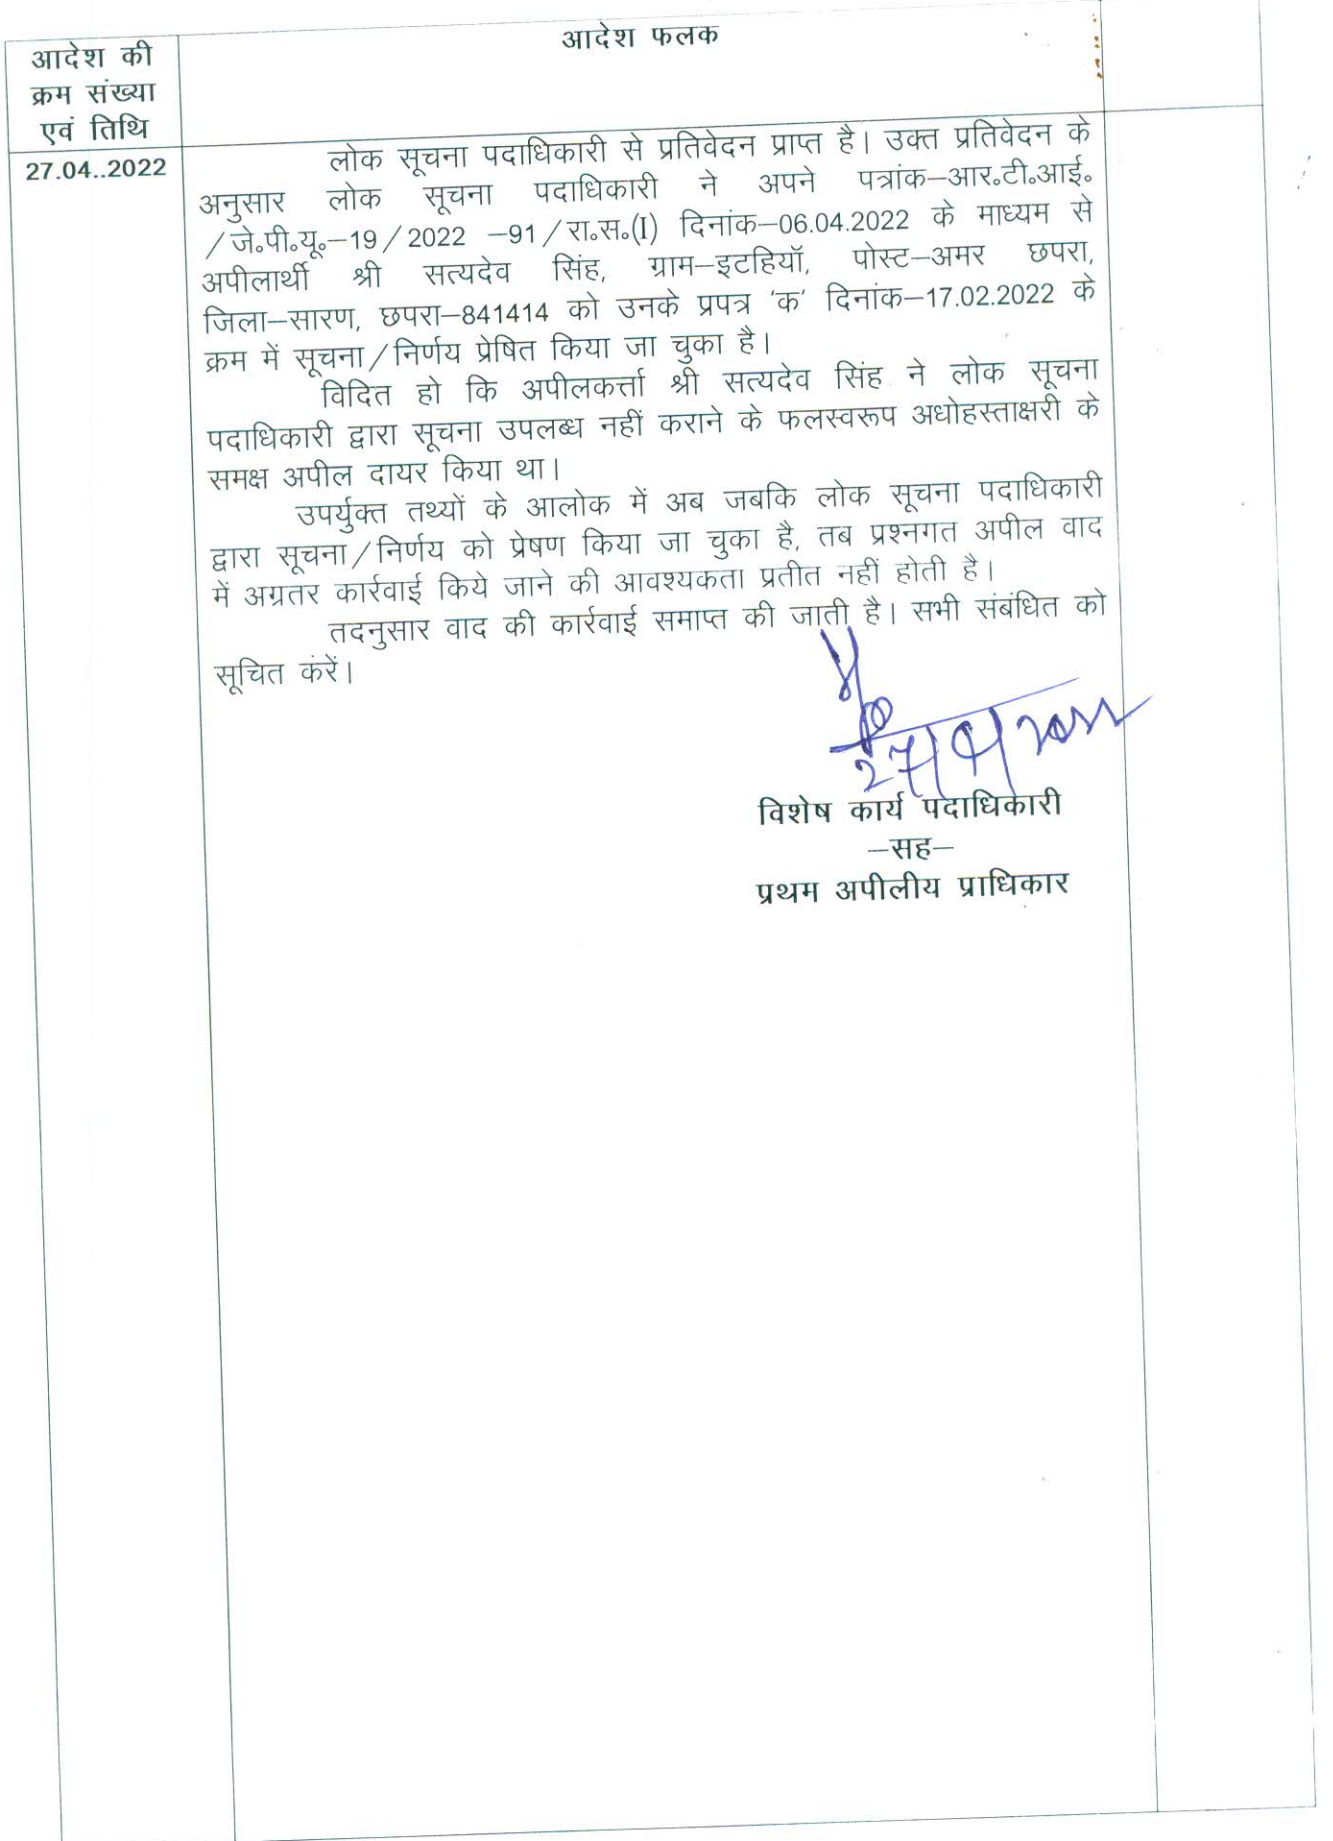 आदेश की
क्रम संख्या
एवं तिथि
आदेश फलक
27.04..2022
लोक सूचना पदाधिकारी से प्रतिवेदन प्राप्त है। उक्त प्रतिवेदन के
अनुसार लोक सूचना पदाधिकारी ने अपने पत्रांक–आर०टी०आई०
/जे०पी०यू०–19/2022 –91/रा०स०(I) दिनांक–06.04.2022 के माध्यम से
अपीलार्थी श्री सत्यदेव सिंह, ग्राम–इटहियॉ, पोस्ट–अमर छपरा,
जिला–सारण, छपरा–841414 को उनके प्रपत्र 'क' दिनांक–17.02.2022 के
क्रम में सूचना/निर्णय प्रेषित किया जा चुका है।
विदित हो कि अपीलकर्त्ता श्री सत्यदेव सिंह ने लोक सूचना
पदाधिकारी द्वारा सूचना उपलब्ध नहीं कराने के फलस्वरूप अधोहस्ताक्षरी के
समक्ष अपील दायर किया था।
उपर्युक्त तथ्यों के आलोक में अब जबकि लोक सूचना पदाधिकारी
द्वारा सूचना/निर्णय को प्रेषण किया जा चुका है, तब प्रश्नगत अपील वाद
में अग्रतर कार्रवाई किये जाने की आवश्यकता प्रतीत नहीं होती है।
तदनुसार वाद की कार्रवाई समाप्त की जाती है। सभी संबंधित को
सूचित करें।
27/4/2022
विशेष कार्य पदाधिकारी
–सह–
प्रथम अपीलीय प्राधिकार